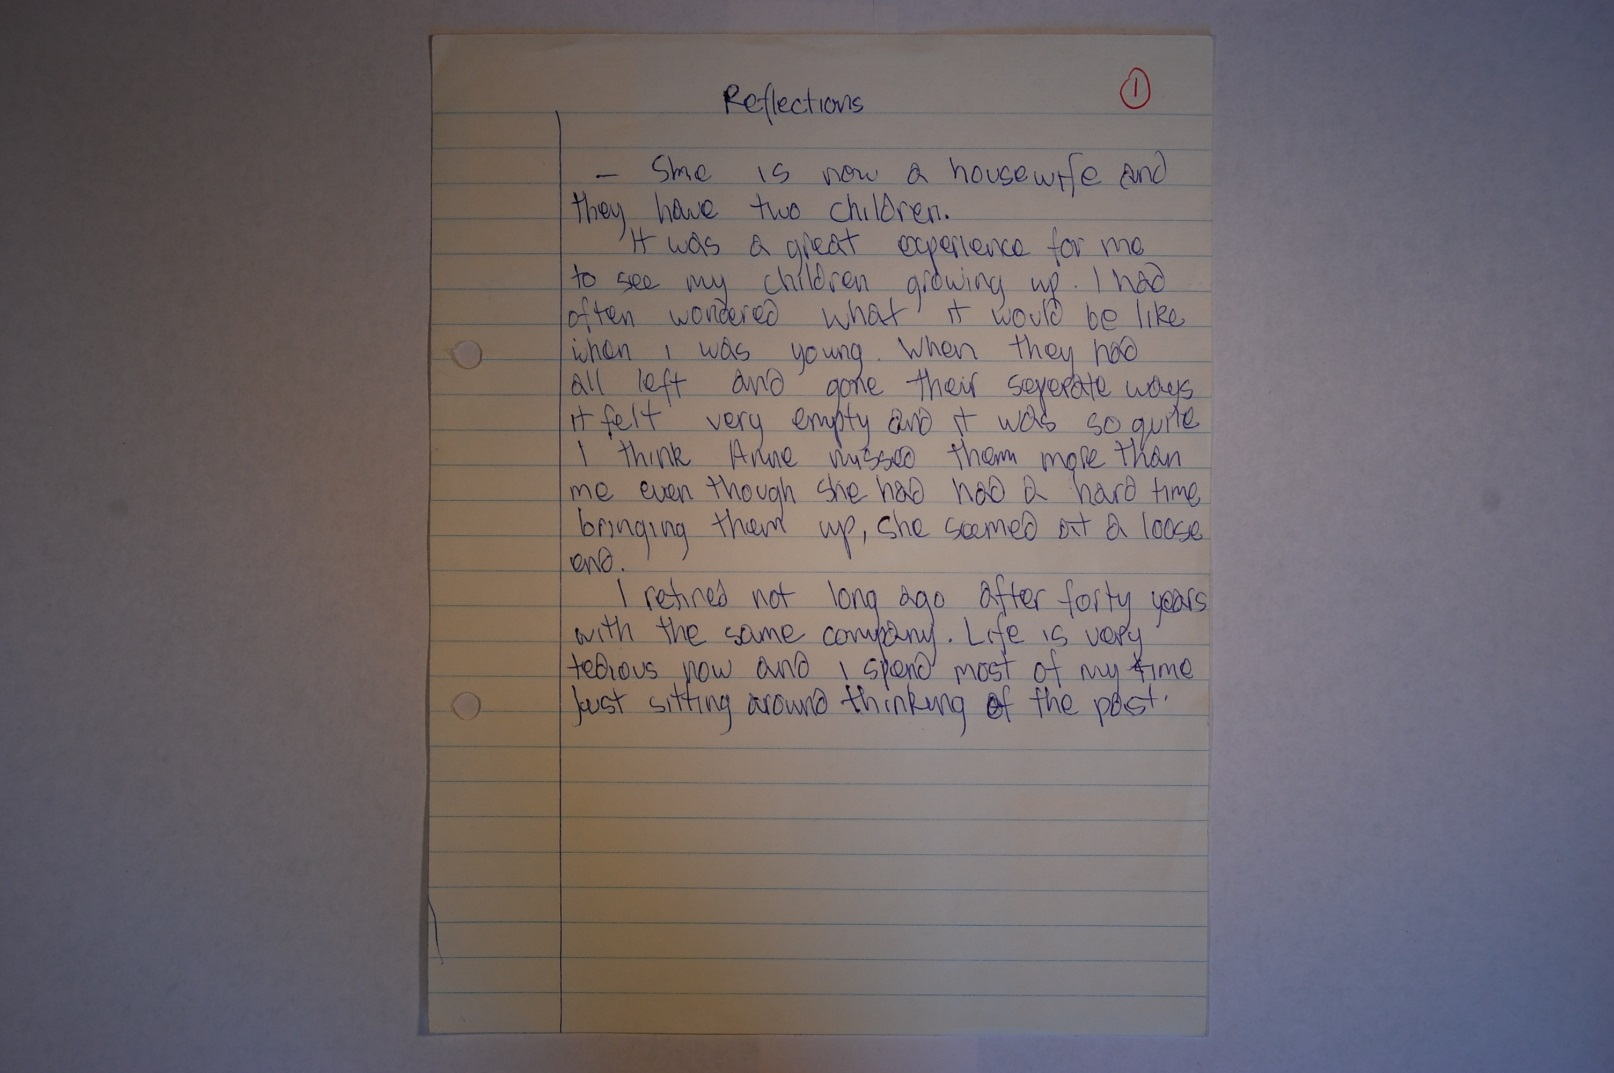 Reflections
1
– She is now a housewife and
they have two children.
It was a great experience for me
to see my children growing up. I had
often wondered what it would be like
when I was young. When they had
all left and gone their seperate ways
it felt very empty and it was so quite
I think Anne missed them more than
me even though she had had a hard time
bringing them up, she seemed at a loose
end.
I retired not long ago after forty years
with the same company. Life is very
tedious now and I spend most of my time
just sitting around thinking of the past.